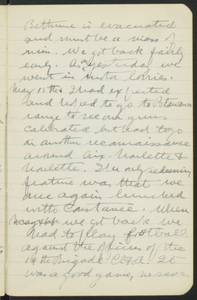 Bethune is evacuated
and must be a mass of
ruin. We got back fairly
early. As yesterday we
went in Motor lorries.
May 15th I had expected
and hoped to go to
range to see our guns
calibrated but had to go
on another reconnaissance
around Aix Noulette &
Noulette. The only redeeming
feature was that we
once again lunched
with Constance. When
we got back we
had to play football
against the officers of the
Brigade CFA. It
was a good game, no score